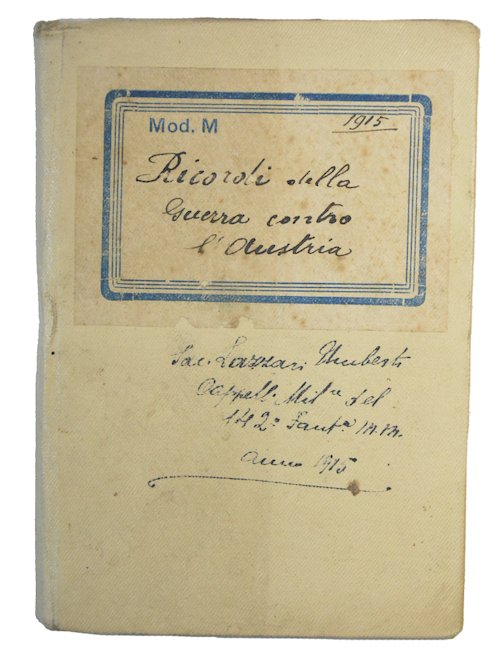 Mod. M
1915
Ricordi della
Guerra contro
l'Austria
Sac. Lazzari Umberto
Cappell. Mil.re del
142º Fant.a M.M.
Anno 1915